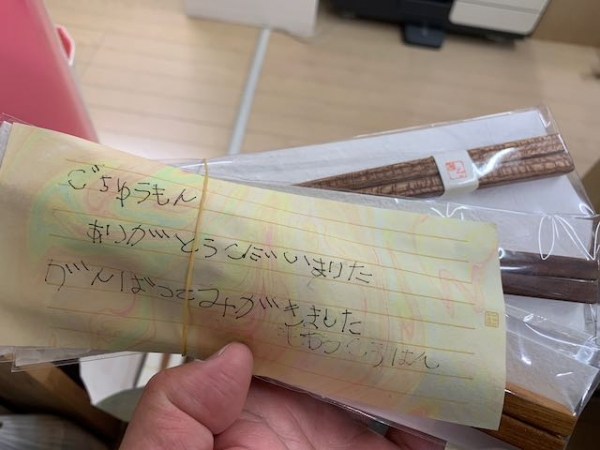 ごちゅうもん
ありがとうございました
がんばってみがきました